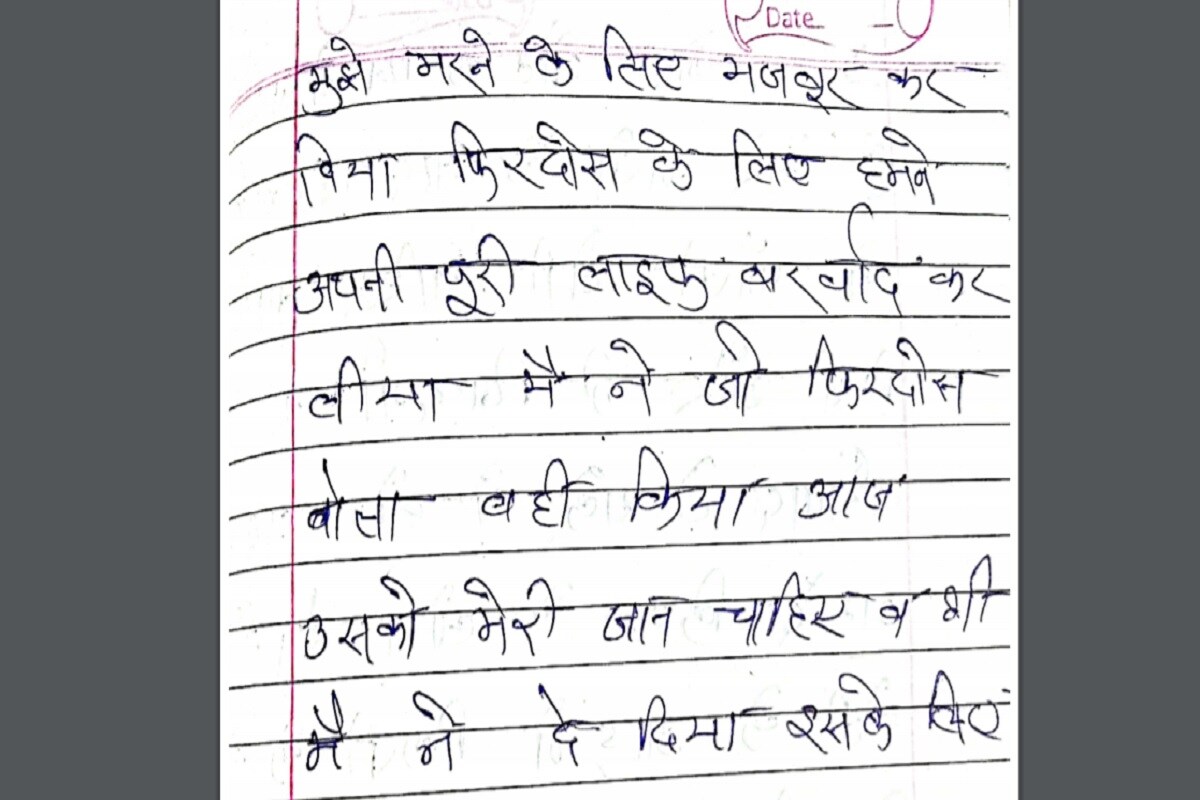 Date
मुझे मरने के लिए मजबूर कर
दिया फिरदोस के लिए हमने
अपनी पूरी लाइफ बरर्वाद कर
लीया मै ने जो फिरदोस
बोला वही किया आज
उसको मेरी जान चाहिए व भी
मै ने दे दिया इसके लिए